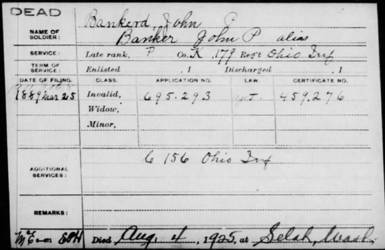 DEAD
Bankerd, John P
NAME OF SOLDIER: Banker John P alias
SERVICE: Late rank, P Co. K, 179 Reg't Ohio Inf
TERM OF SERVICE: Enlisted , 1 Discharged , 1
DATE OF FILING. CLASS. APPLICATION NO. LAW. CERTIFICATE NO.
1889 Mar 25 Invalid, 695.293 459.276
Widow,
Minor,
C 156 Ohio Inf
ADDITIONAL SERVICES:
REMARKS:
Died Aug. 4, 1925, at Selah, Wash.